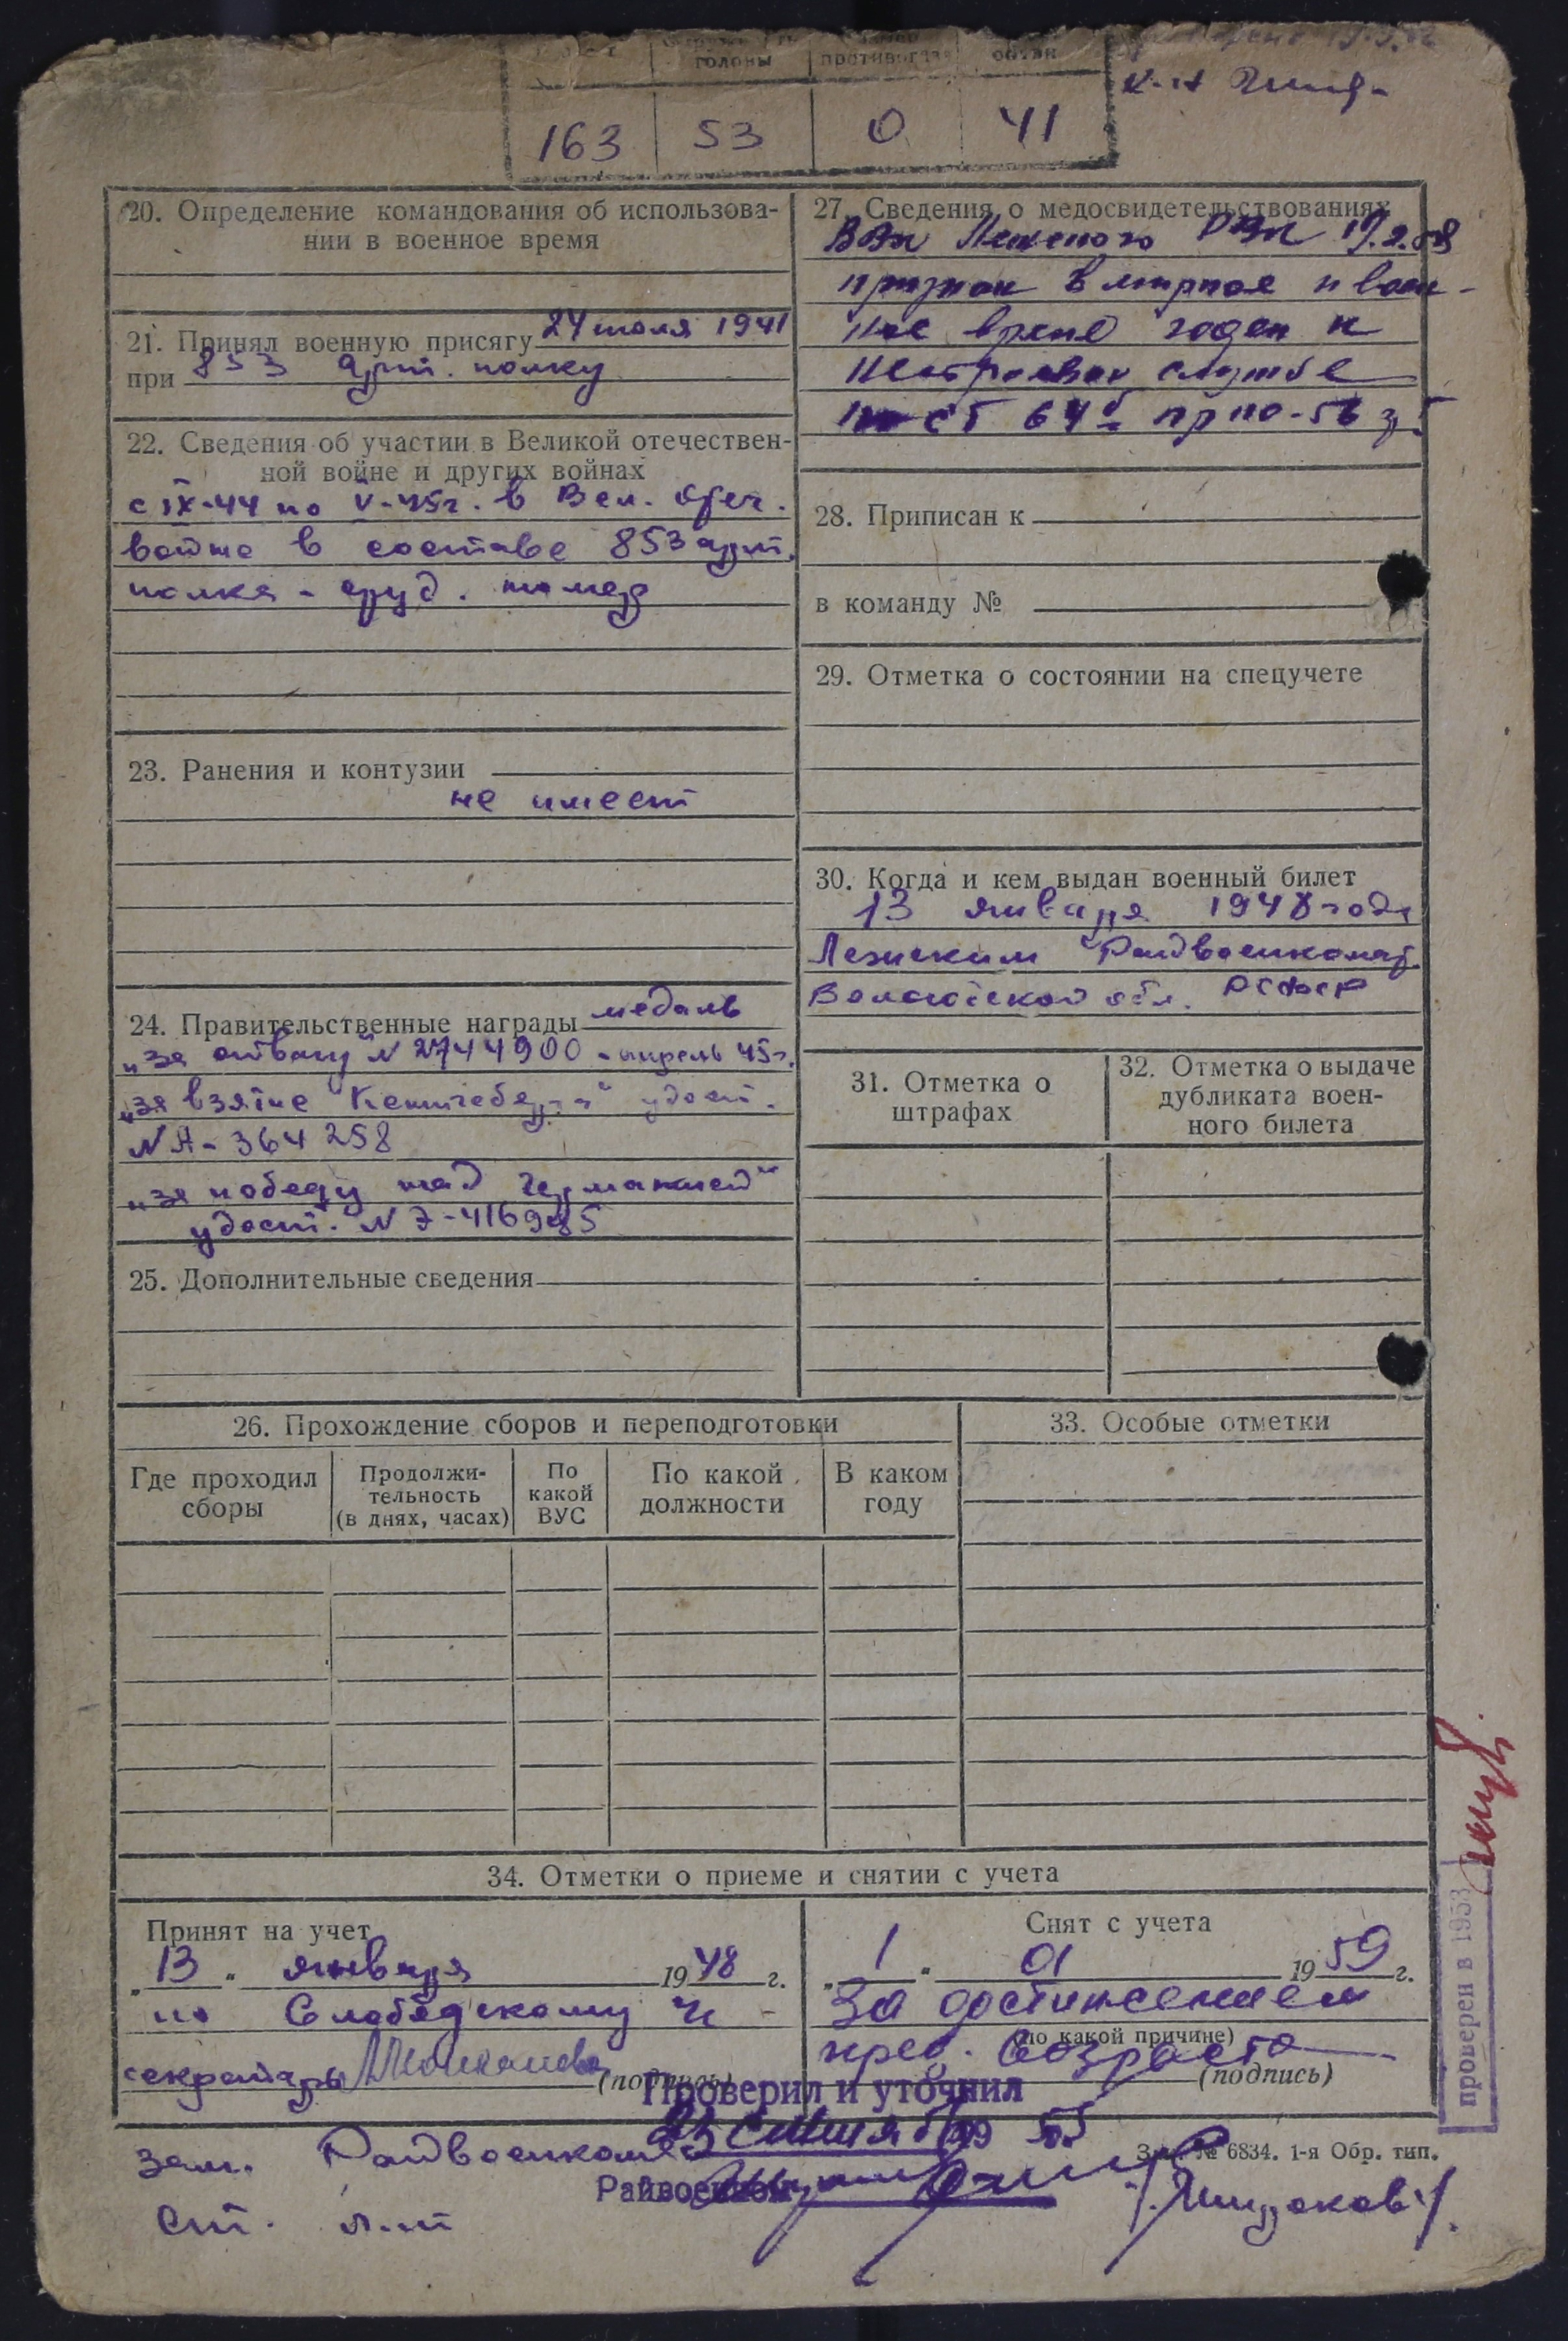 головы
противогаза
обуви
163 53 0 41
20. Определение командования об использова-
нии в военное время
21. Принял военную присягу 24 июля 1941
при 853 арт. полку
22. Сведения об участии в Великой отечествен-
ной войне и других войнах
с IX-44 по V-45г. в Вел. Отеч.
войне в составе 853 арт.
полка - оруд. номер
23. Ранения и контузии
не имеет
24. Правительственные награды медаль
„за отвагу" N 2744900 - апрель 45г.
„за взятие Кенигсберга" удост.
N А-364258
„за победу над Германией"
удост. N
25. Дополнительные сведения
27. Сведения о медосвидетельствованиях
РВК
признан в мирное и воен-
ное время годен к
нестроевой службе
ст 64б пр
28. Приписан к
в команду №
29. Отметка о состоянии на спецучете
30. Когда и кем выдан военный билет
13 января 1948 года
Лежским Райвоенкомат.
Вологодской обл. РСФСР
31. Отметка о
штрафах
32. Отметка о выдаче
дубликата воен-
ного билета
26. Прохождение сборов и переподготовки
Где проходил
сборы
Продолжи-
тельность
(в днях, часах)
По
какой
ВУС
По какой
должности
В каком
году
33. Особые отметки
34. Отметки о приеме и снятии с учета
Принят на учет
„13" января 1948 г.
по Слободскому
секретарь (подпись)
Снят с учета
„1" 01 1959 г.
За достижением
(по какой причине)
пред. возраста
(подпись)
проверен в 1953
Проверил и уточнил
Зам. Райвоенкома
Райвоенком
ст. л-т
Зак. № 6834. 1-я Обр. тип.